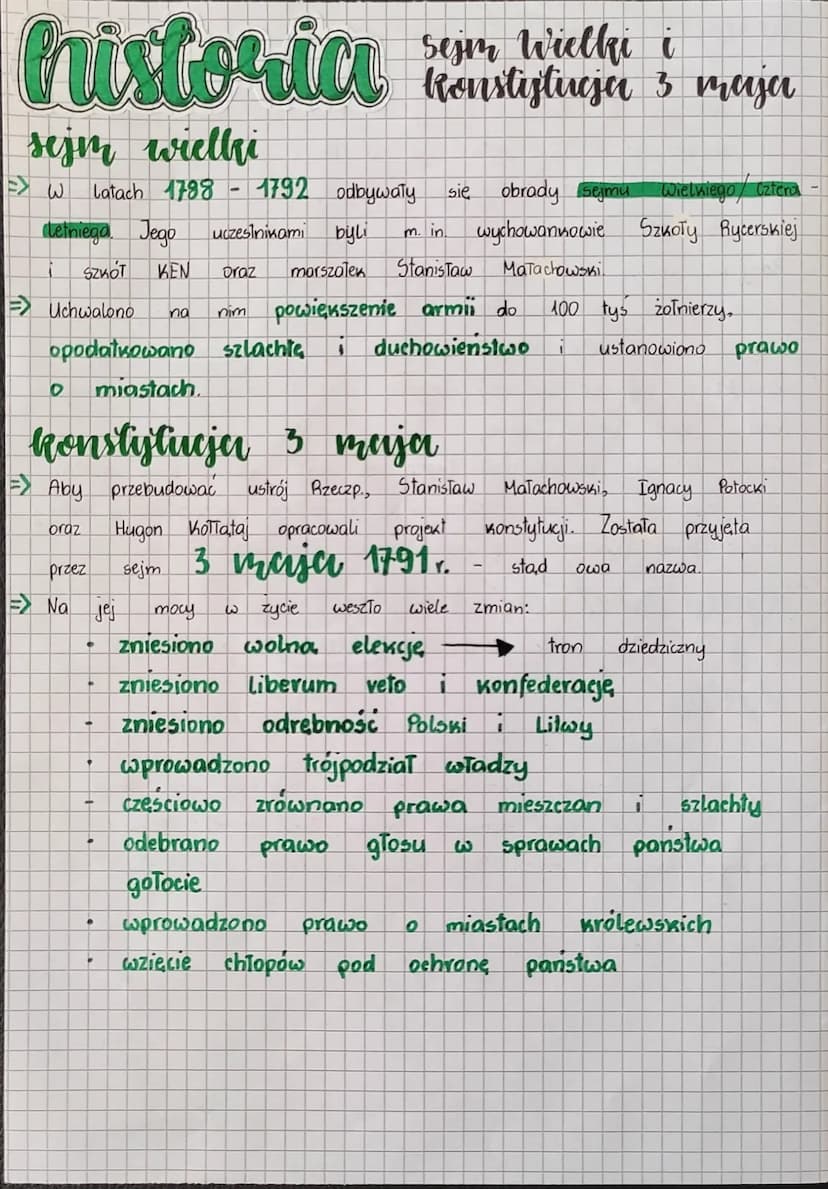 historia
sejm Wielki i
konstytucja 3 maja
sejm wielki
=> W latach 1788 - 1792 odbywały się obrady sejmu Wielkiego/Cztero-
letniego. Jego uczestnikami byli m. in. wychowankowie Szkoły Rycerskiej
i szkół KEN oraz marszałek Stanisław Małachowski.
=> Uchwalono na nim powiększenie armii do 100 tyś żołnierzy,
opodatkowano szlachtę i duchowieństwo i ustanowiono prawo
o miastach.
konstytucja 3 maja
=> Aby przebudować ustrój Rzeczp., Stanisław Małachowski, Ignacy Potocki
oraz Hugon Kołłątaj opracowali projekt konstytucji. Została przyjęta
przez sejm 3 maja 1791 r. - stąd owa nazwa.
=> Na jej mocy w życie weszło wiele zmian:
• zniesiono wolną elekcję → tron dziedziczny
• zniesiono liberum veto i konfederację
- zniesiono odrębność Polski i Litwy
• wprowadzono trójpodział władzy
- częściowo zrównano prawa mieszczan i szlachty
• odebrano prawo głosu w sprawach państwa
gołocie
• wprowadzono prawo o miastach królewskich
• wzięcie chłopów pod ochronę państwa